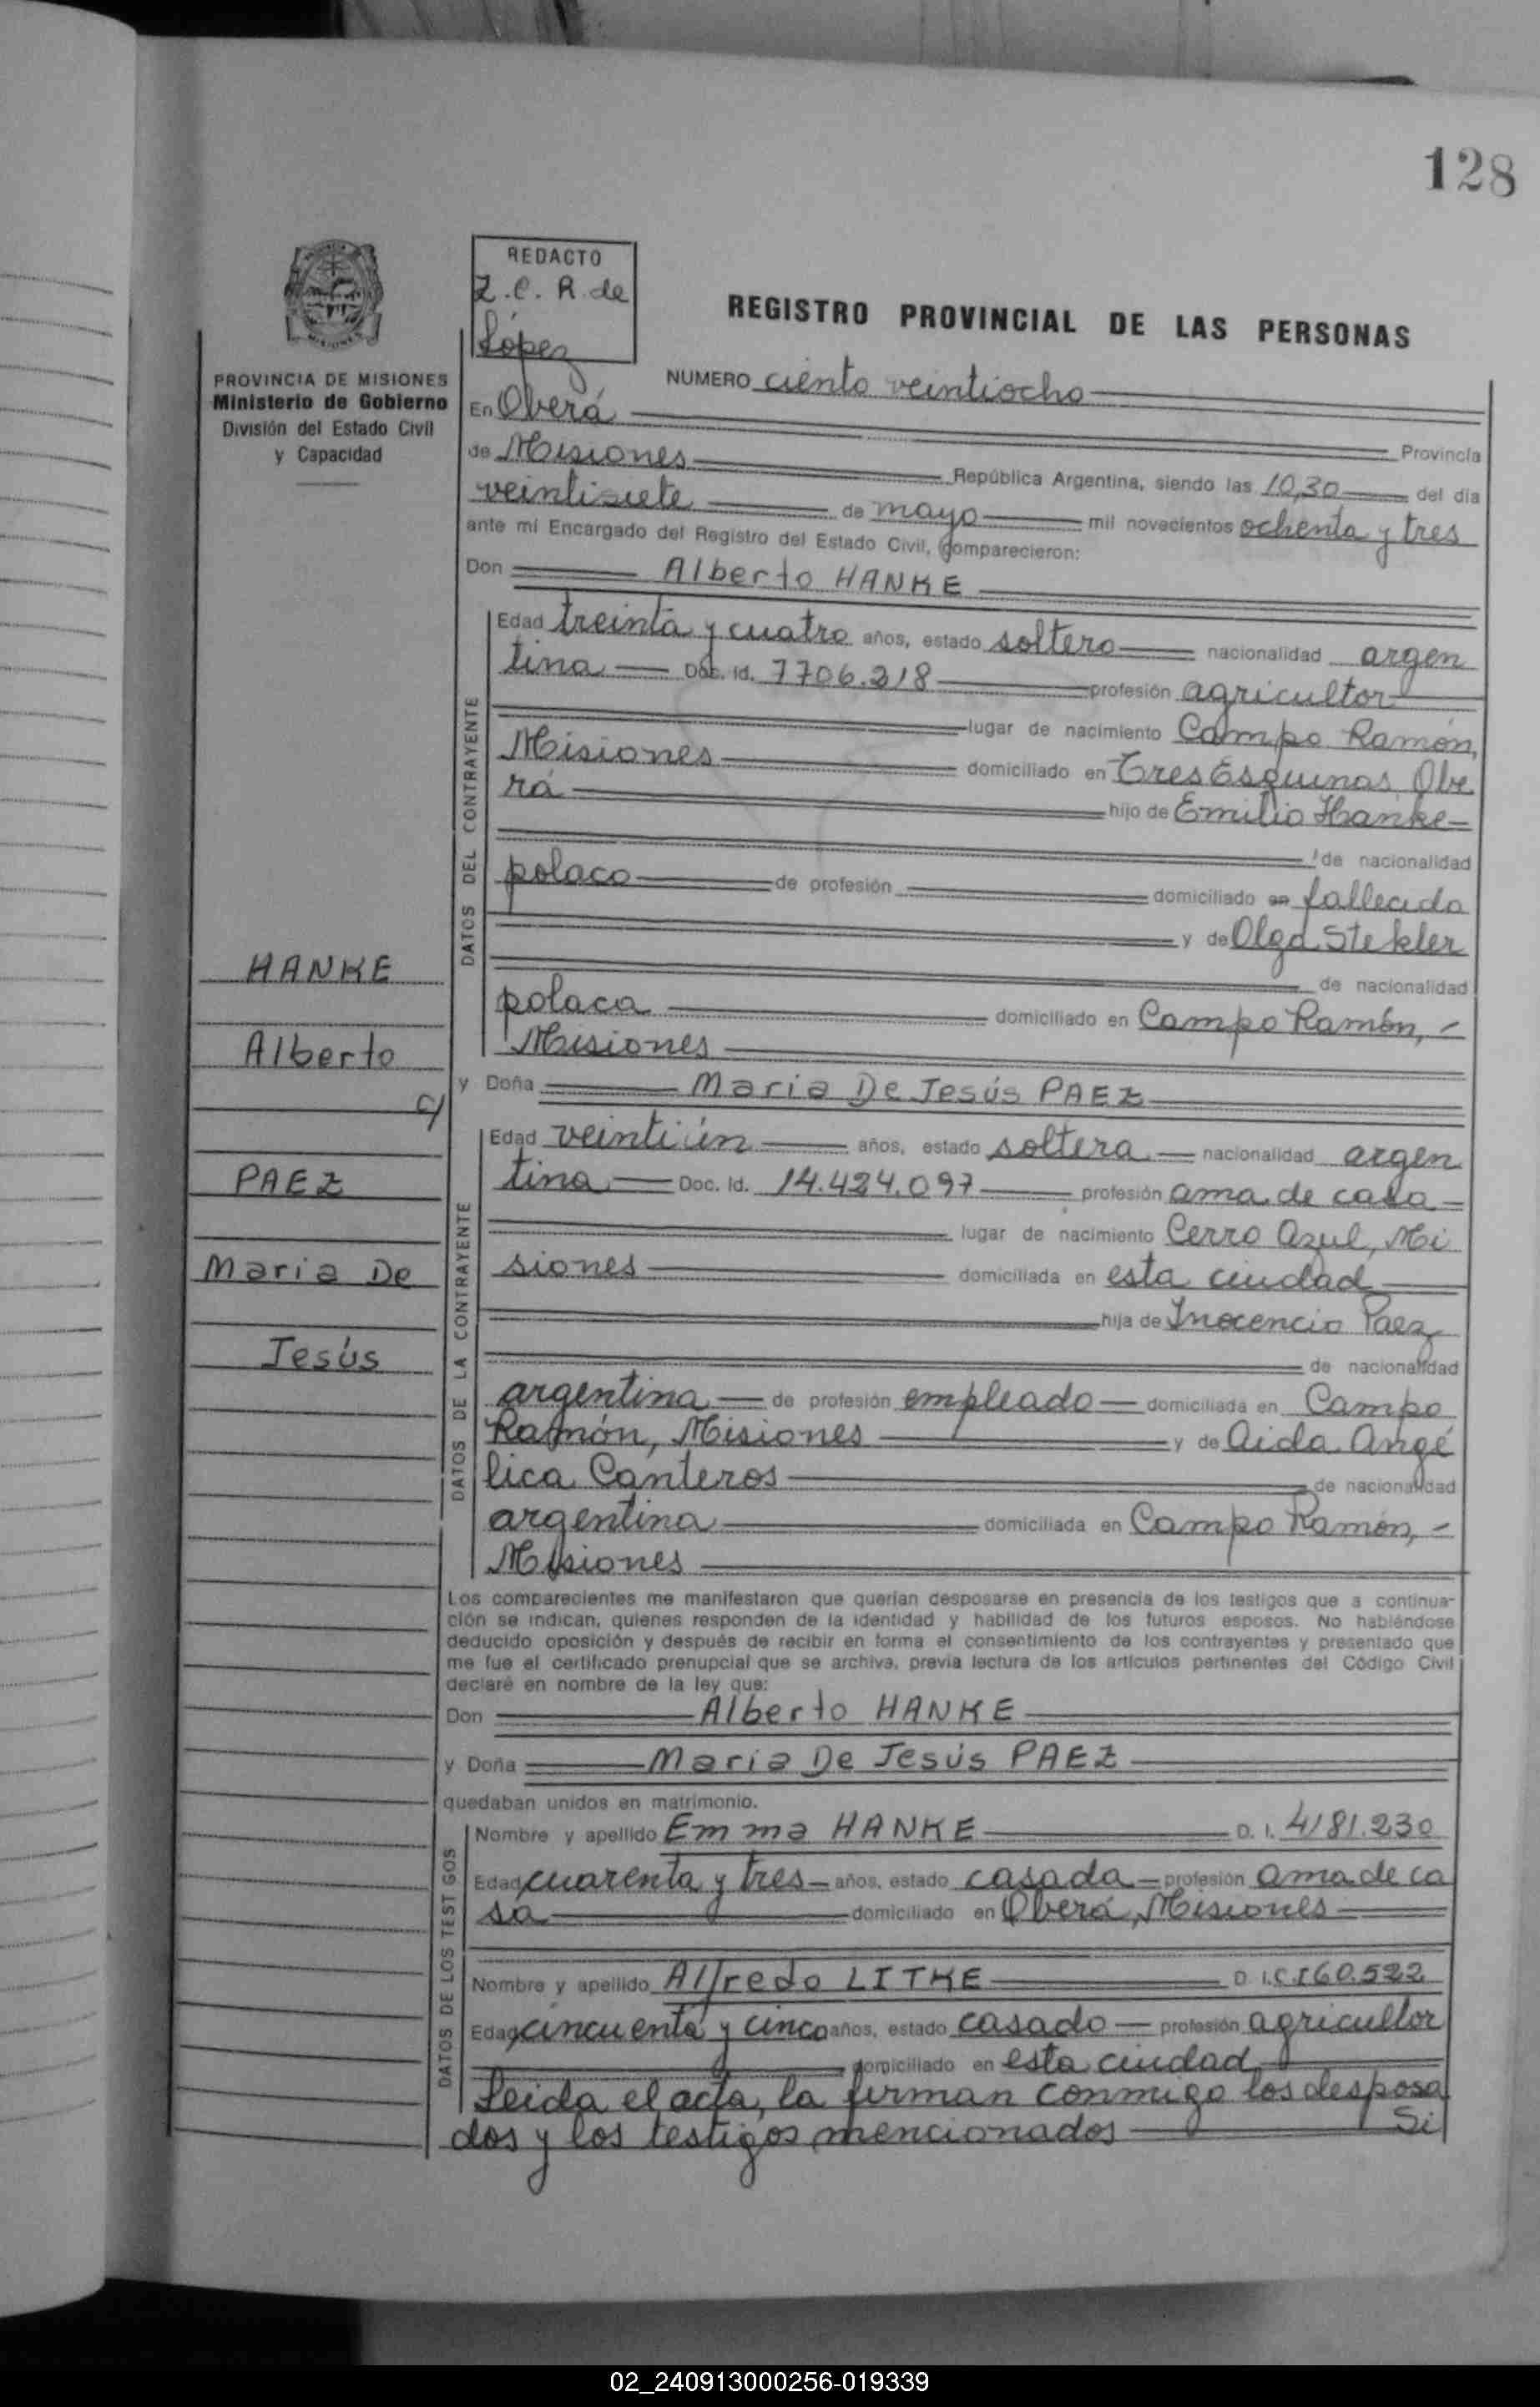 128
REDACTO
Z.C.R. de
López
REGISTRO PROVINCIAL DE LAS PERSONAS
PROVINCIA DE MISIONES
Ministerio de Gobierno
División del Estado Civil
y Capacidad
NUMERO ciento veintiocho
En Oberá Provincia
de Misiones República Argentina, siendo las 10,30 del día
veintisiete de mayo mil novecientos ochenta y tres
ante mí Encargado del Registro del Estado Civil, comparecieron:
Don Alberto HANKE
DATOS DEL CONTRAYENTE
Edad treinta y cuatro años, estado soltero nacionalidad argen
tina Doc. Id. 7706.218 profesión agricultor
lugar de nacimiento Campo Ramón,
Misiones domiciliado en Tres Esquinas Obe
rá hijo de Emilio Hanke
de nacionalidad
polaco de profesión domiciliado en fallecido
y de Olga Stekler
de nacionalidad
polaca domiciliado en Campo Ramón, -
Misiones
HANKE
Alberto
c/
PAEZ
Maria De
Jesús
y Doña Maria De Jesús PAEZ
DATOS DE LA CONTRAYENTE
Edad veintiún años, estado soltera nacionalidad argen
tina Doc. Id. 14.424.097 profesión ama de casa
lugar de nacimiento Cerro Azul, Mi
siones domiciliada en esta ciudad
hija de Inocencio Paez
de nacionalidad
argentina de profesión empleado domiciliada en Campo
Ramón, Misiones y de Aida Angé
lica Canteros de nacionalidad
argentina domiciliada en Campo Ramón, -
Misiones
Los comparecientes me manifestaron que querían desposarse en presencia de los testigos que a continua-
ción se indican, quienes responden de la identidad y habilidad de los futuros esposos. No habiéndose
deducido oposición y después de recibir en forma el consentimiento de los contrayentes y presentado que
me fue el certificado prenupcial que se archiva, previa lectura de los artículos pertinentes del Código Civil
declaré en nombre de la ley que:
Don Alberto HANKE
y Doña Maria De Jesús PAEZ
quedaban unidos en matrimonio.
DATOS DE LOS TESTIGOS
Nombre y apellido Emma HANKE D. I. 4181.230
Edad cuarenta y tres años, estado casada profesión ama de ca
sa domiciliado en Oberá, Misiones
Nombre y apellido Alfredo LITKE D. I. C.I 60.522
Edad cincuenta y cinco años, estado casado profesión agricultor
domiciliado en esta ciudad
Leida el acta, la firman conmigo los desposa
dos y los testigos mencionados Si
02_240913000256-019339